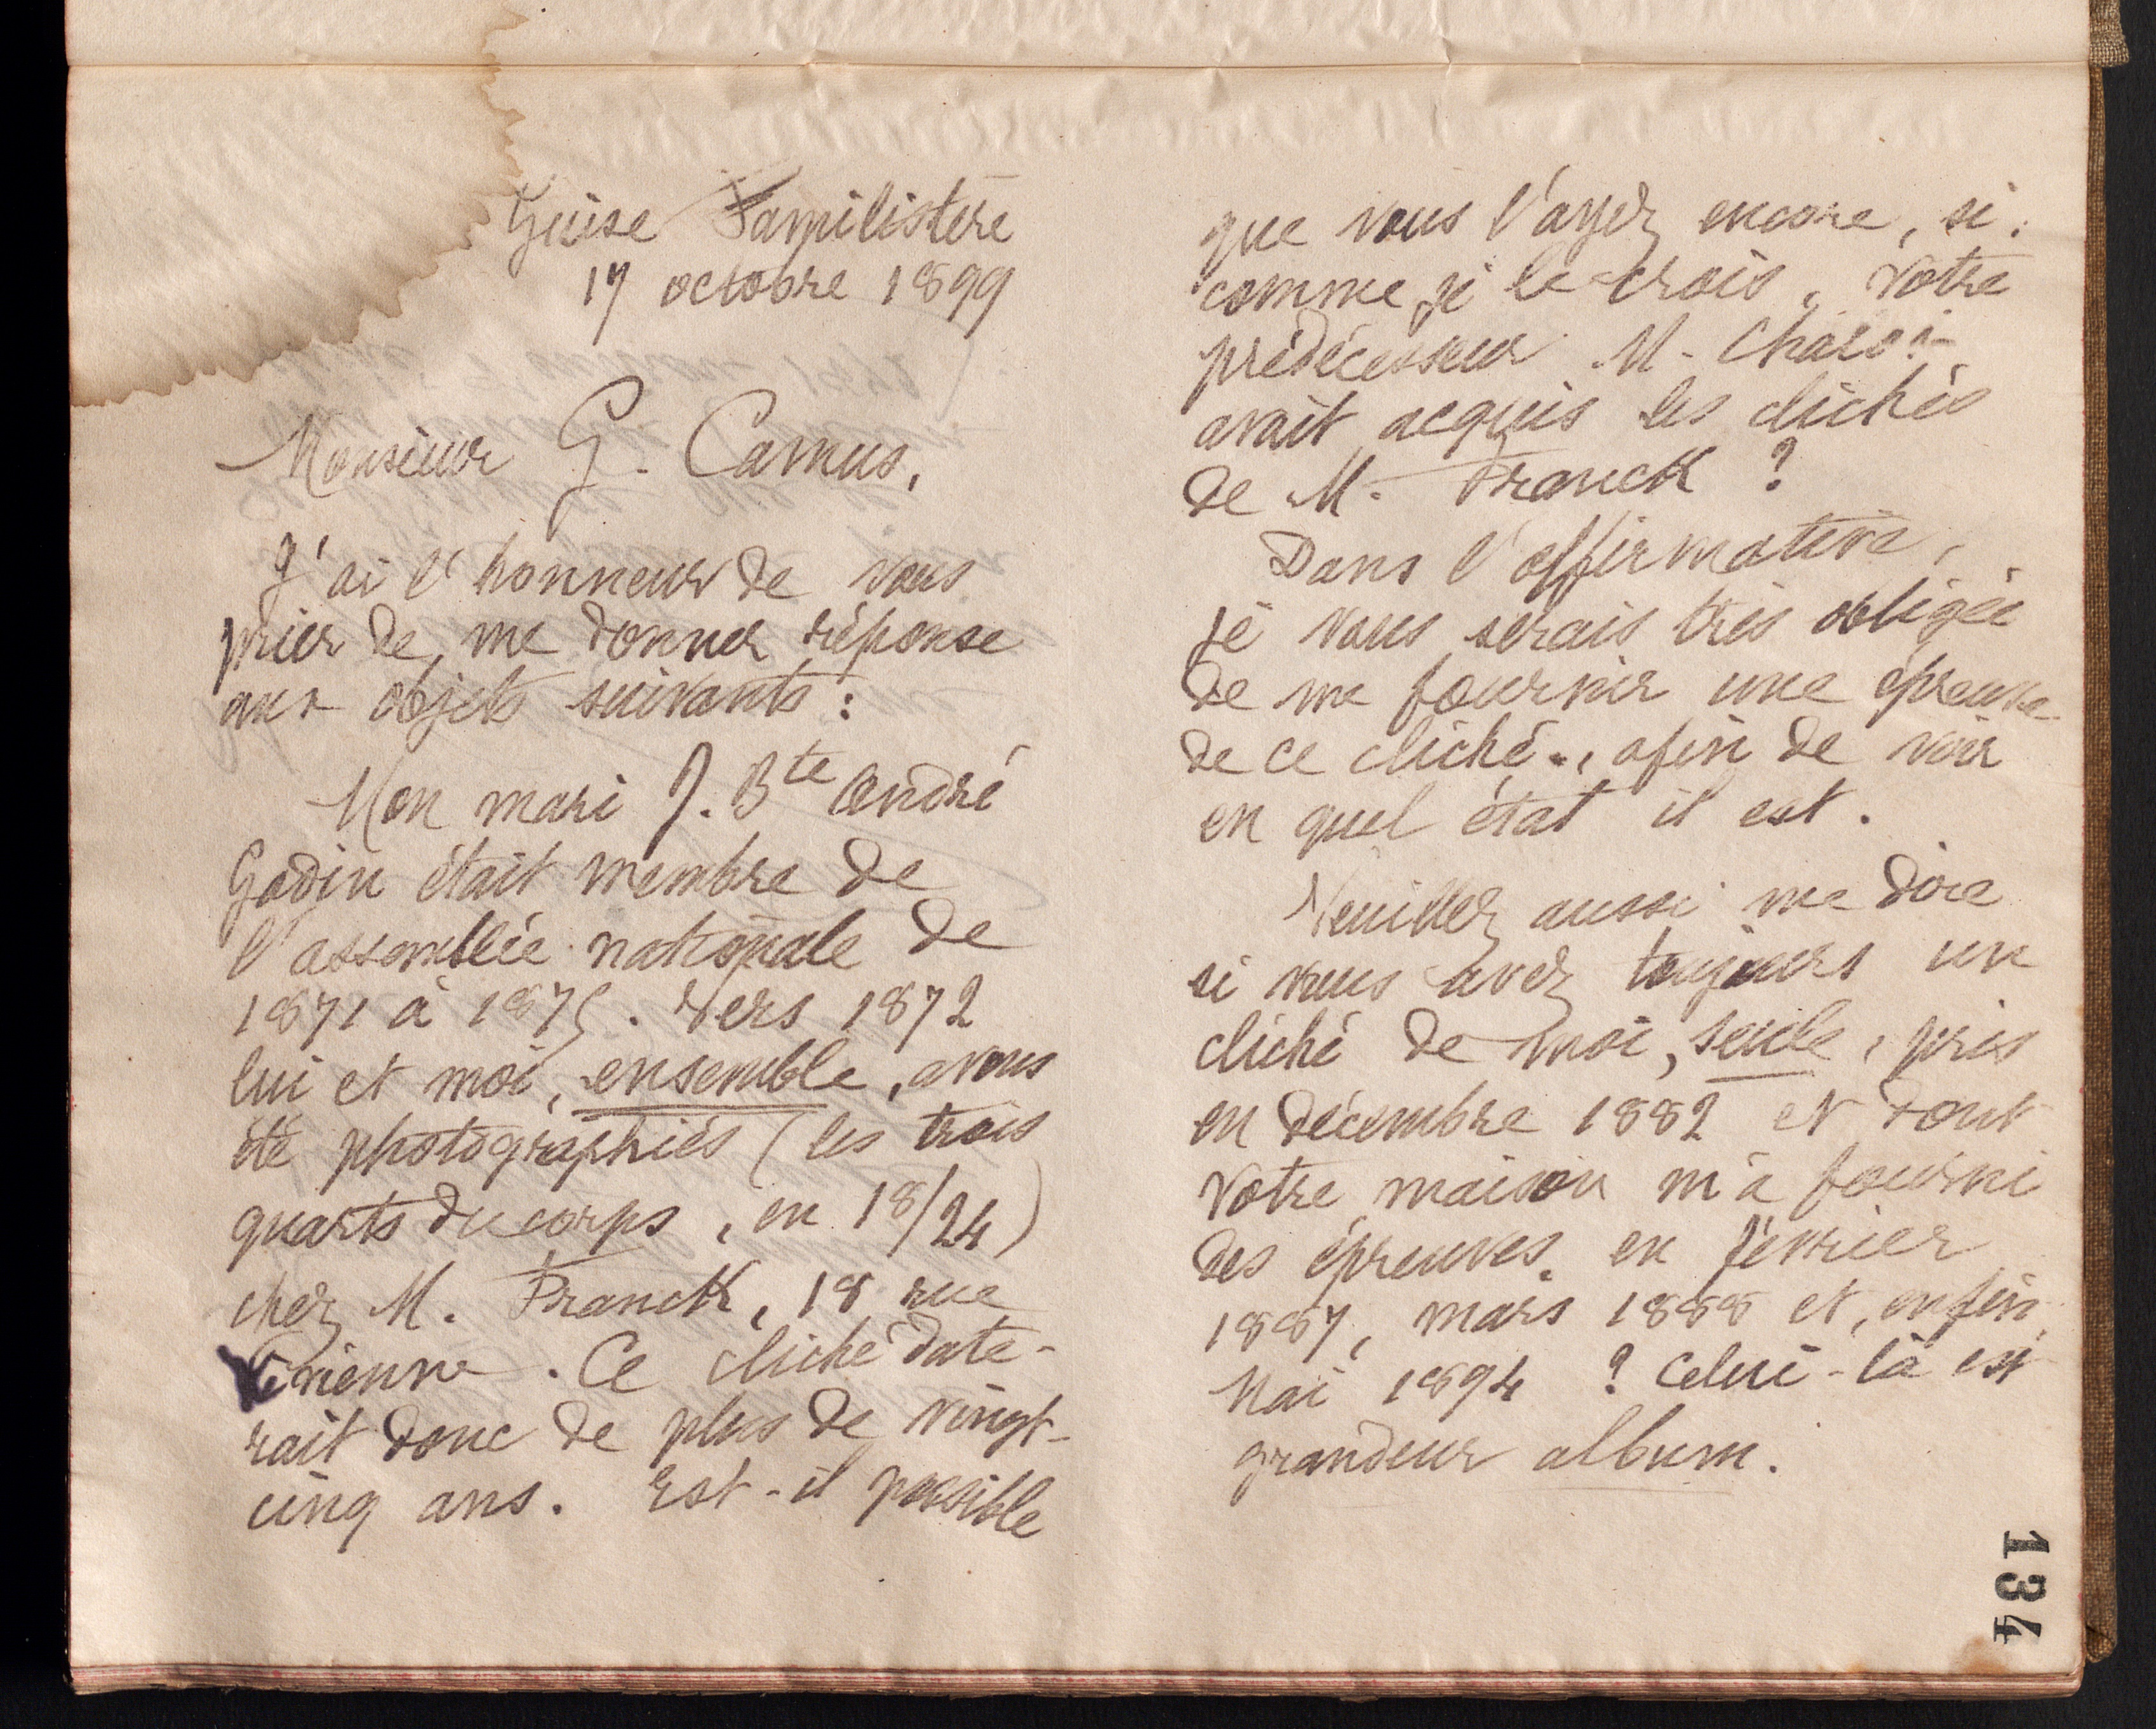 Guise Familistère
17 octobre 1899
Monsieur G. Camus,
J'ai l'honneur de vous
prier de me donner réponse
aux objets suivants :
Mon mari J. Bte André
Godin était membre de
l'assemblée nationale de
1871 à 1875. Vers 1872
lui et moi, ensemble, avons
été photographiés (les trois
quarts du corps, en 18/24)
chez M. Franck, 18 rue
Vivienne. Ce cliché date-
rait donc de plus de vingt-
cinq ans. Est-il possible
que vous l'ayez encore, si,
comme je le crois, votre
prédécesseur M.
avait acquis les clichés
de M. Franck ?
Dans l'affirmative,
je vous serais très obligée
de me fournir une épreuve
de ce cliché, afin de voir
en quel état il est.
Veuillez aussi me dire
si vous avez toujours un
cliché de moi, seule, pris
en décembre 1882 et dont
votre maison m'a fourni
des épreuves en février
1887, mars 1888 et, enfin,
Mai 1894 ? Celui-là est
grandeur album.
134